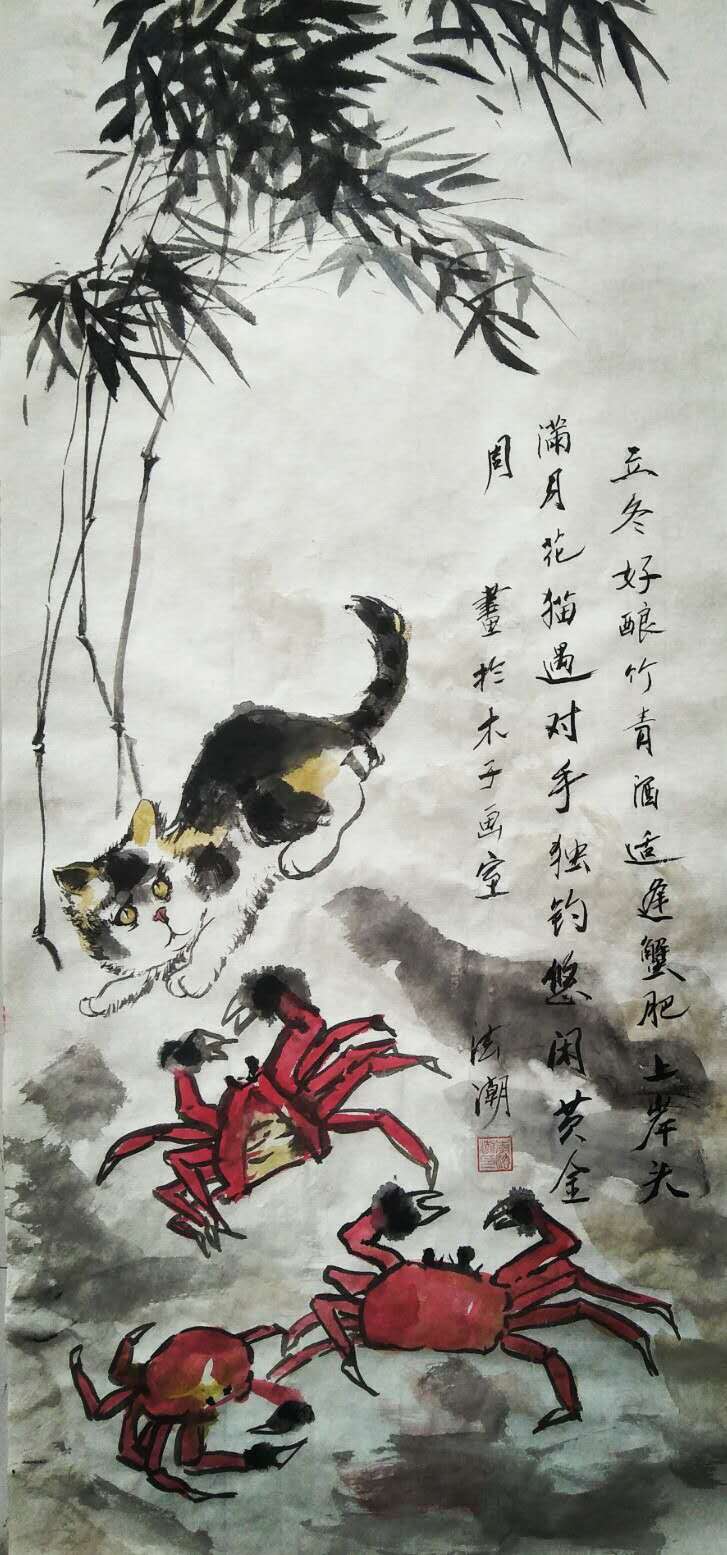 立冬好酿竹青酒适逢蟹肥上岸头
满月花猫遇对手独钓悠闲黄金
周 画於木子画室 法潮